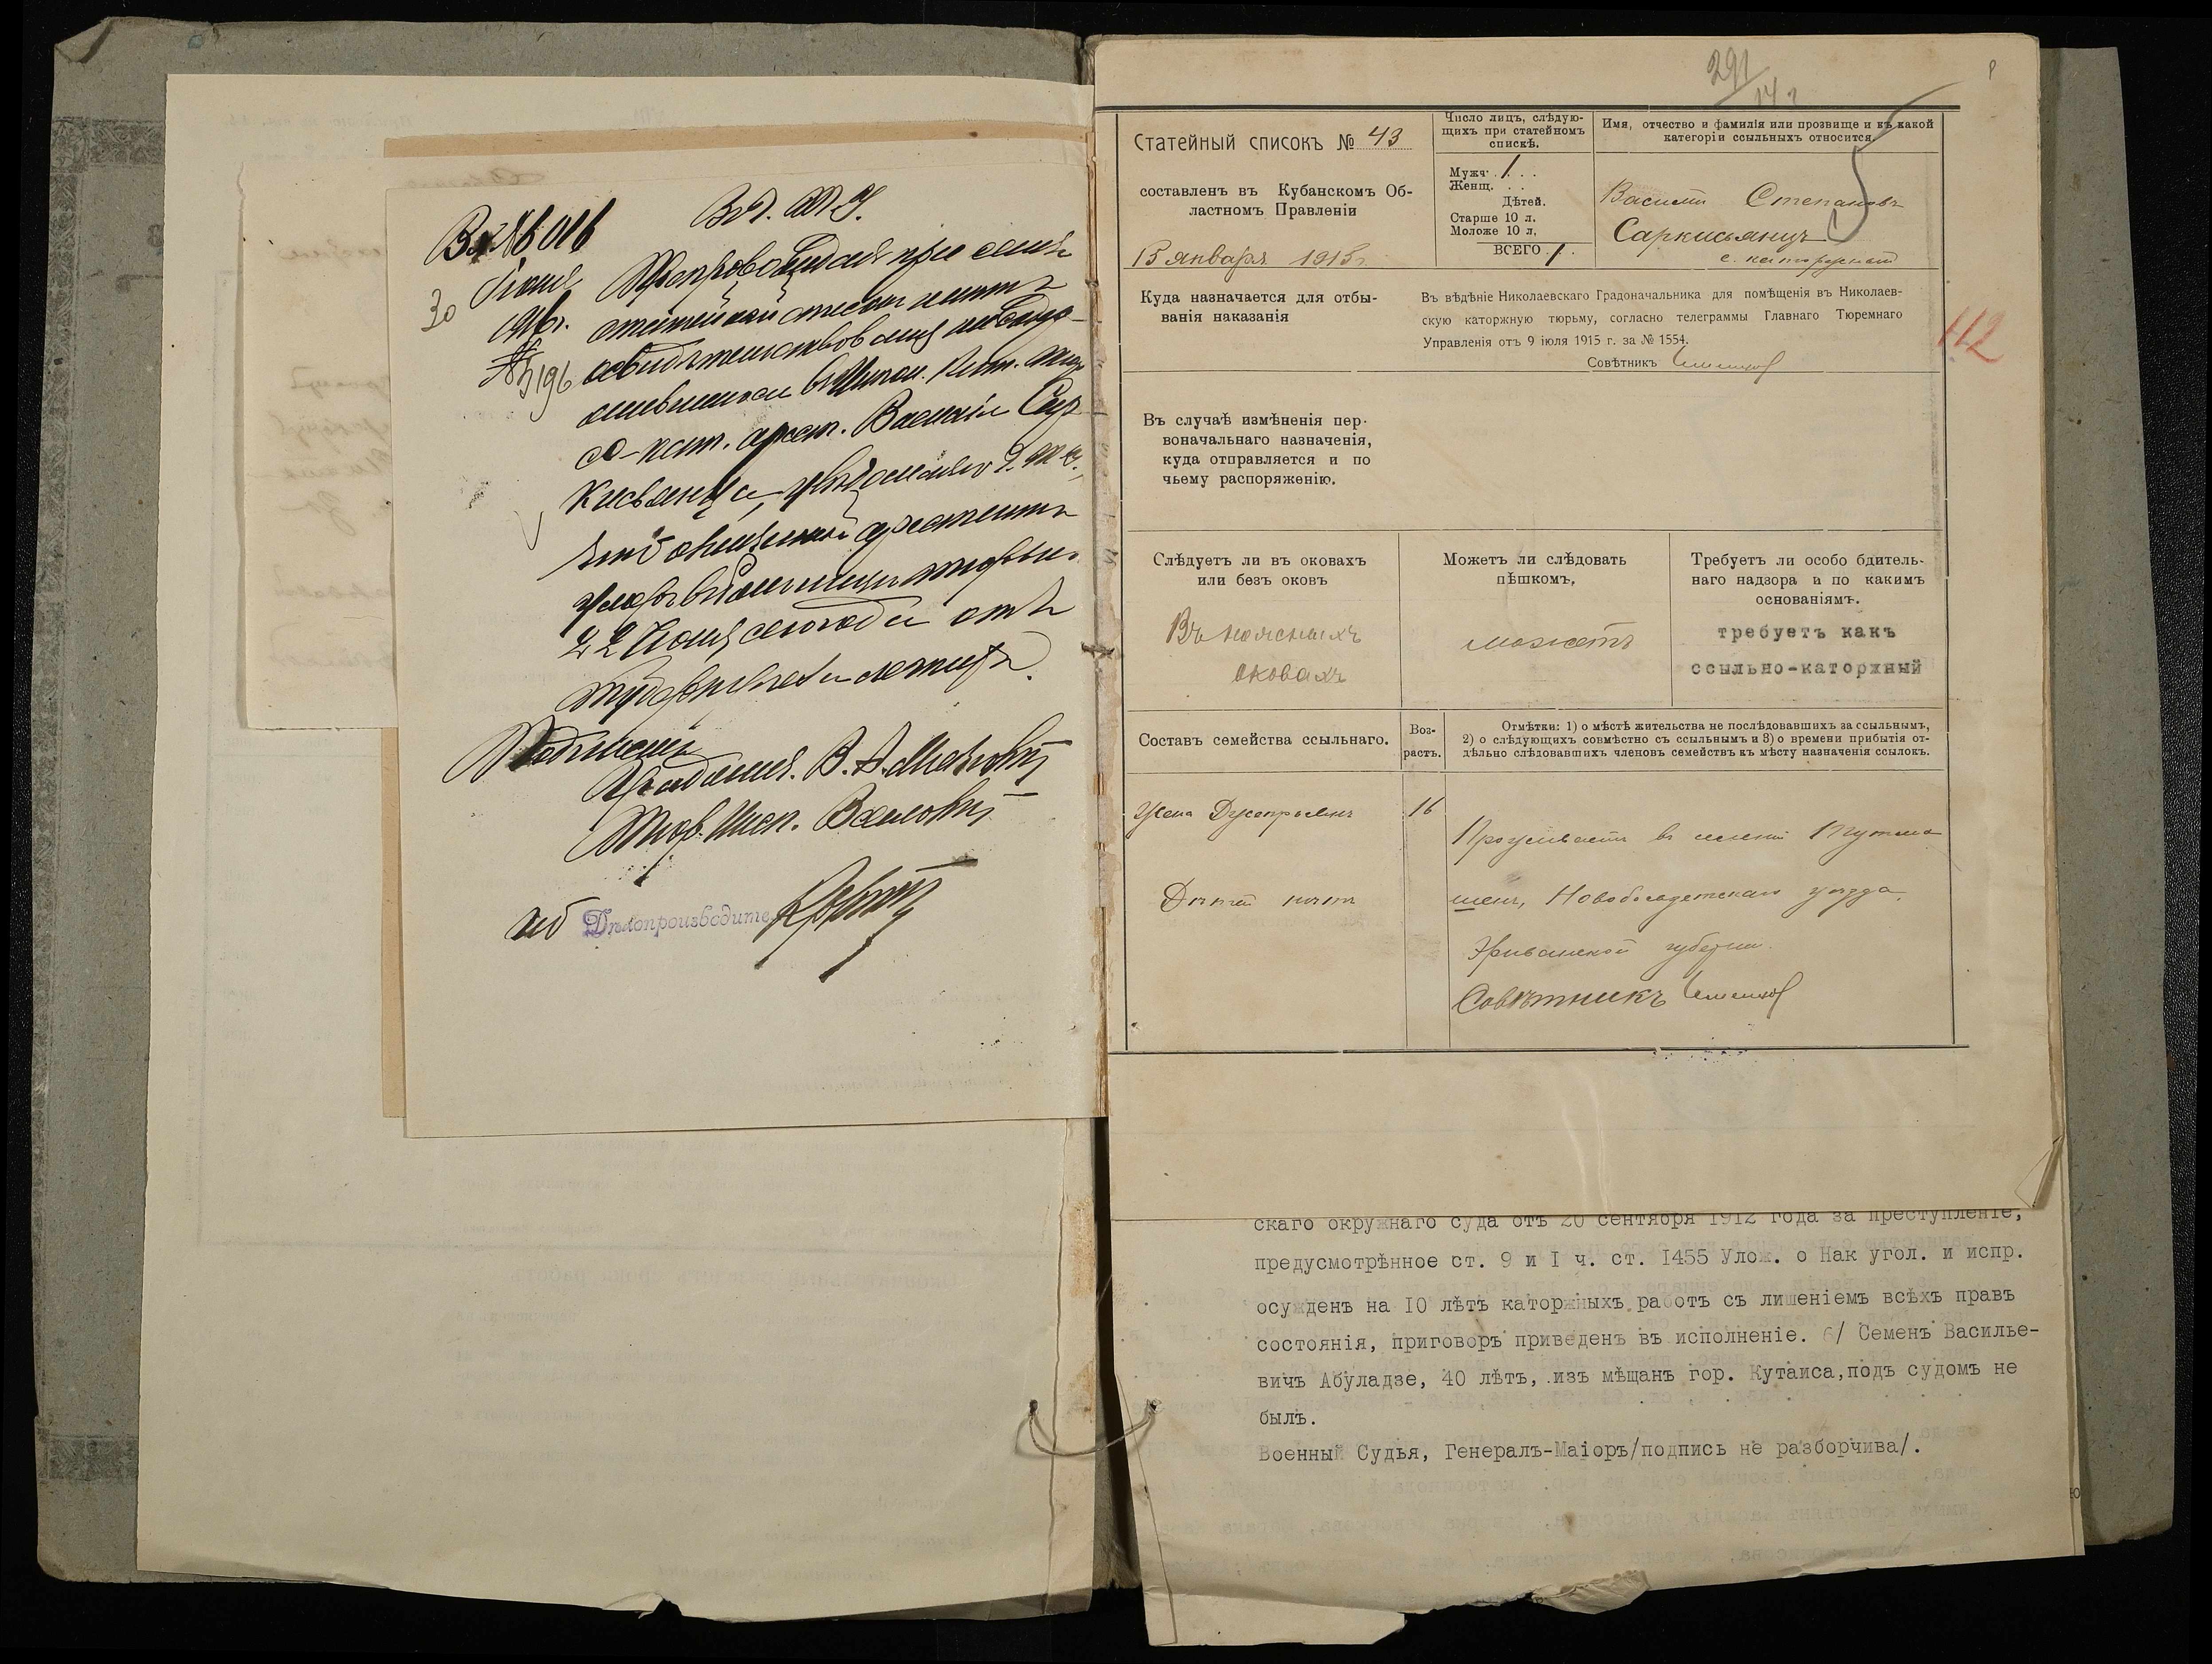 30
Іюня
1916 г.
№ 5196
В. Г. Т. И.
Препровождая при семъ
статейный списокъ и актъ
освидѣтельствованія
с-кат. арест. Василія Сар
кисьянца, увѣдомляю Г. Т. И.,
что означенный арестантъ
умеръ въ больницѣ тюрьмы
22 Іюня сего года отъ
туберкулеза легкихъ.
Подписали:
В. А.
Тюр. Инсп.
Дѣлопроизводитель
291
14 г
Статейный списокъ № 43
составленъ въ Кубанскомъ Об-
ластномъ Правленіи
15 января 1915 г.
Число лицъ, слѣдую-
щихъ при статейномъ
спискѣ.
Мужч. 1 . .
Женщ. . .
Дѣтей.
Старше 10 л.
Моложе 10 л.
ВСЕГО 1 .
Имя, отчество и фамилія или прозвище и къ какой
категоріи ссыльныхъ относится
Василій Степановъ
Саркисьянцъ
с. каторжный
Куда назначается для отбы-
ванія наказанія
Въ вѣдѣніе Николаевскаго Градоначальника для помѣщенія въ Николаев-
скую каторжную тюрьму, согласно телеграммы Главнаго Тюремнаго
Управленія отъ 9 іюля 1915 г. за № 1554.
Совѣтникъ
112
Въ случаѣ измѣненія пер-
воначальнаго назначенія,
куда отправляется и по
чьему распоряженію.
Слѣдуетъ ли въ оковахъ
или безъ оковъ
Въ поясныхъ
оковахъ
Можетъ ли слѣдовать
пѣшкомъ,
можетъ
Требуетъ ли особо бдитель-
наго надзора и по какимъ
основаніямъ.
требуетъ какъ
ссыльно-каторжный
Составъ семейства ссыльнаго.
Воз-
растъ.
Отмѣтки: 1) о мѣстѣ жительства не послѣдовавшихъ за ссыльнымъ,
2) о слѣдующихъ совмѣстно съ ссыльнымъ и 3) о времени прибытія от-
дѣльно слѣдовавшихъ членовъ семействъ къ мѣсту назначенія ссылокъ.
Жена
16
Дѣтей нѣтъ
Проживаетъ въ селеніи
Новобаязетскаго уѣзда,
Эриванской губерніи.
Совѣтникъ
скаго окружнаго суда отъ 20 сентября 1912 года за преступленіе,
предусмотрѣнное ст. 9 и I ч. ст. I455 Улож. о Нак угол. и испр.
осужденъ на IO лѣтъ каторжныхъ работъ съ лишеніемъ всѣхъ правъ
состоянія, приговоръ приведенъ въ исполненіе. 6/ Семенъ Василье-
вичъ Абуладзе, 40 лѣтъ, изъ мѣщанъ гор. Кутаиса,подъ судомъ не
былъ.
Военный Судья, Генералъ-Маіоръ/подпись не разборчива/.